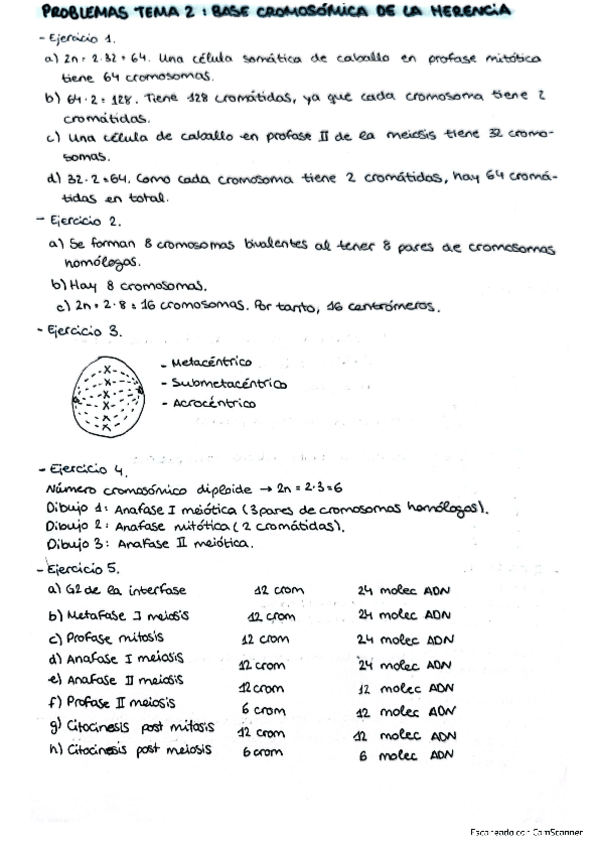 PROBLEMAS TEMA 2: BASE CROMOSÓMICA DE LA HERENCIA
- Ejercicio 1.
a) 2n = 2·32 = 64. Una célula somática de caballo en profase mitótica
tiene 64 cromosomas.
b) 64·2 = 128. Tiene 128 cromátidas, ya que cada cromosoma tiene 2
cromátidas.
c) Una célula de caballo en profase II de la meiosis tiene 32 cromo-
somas.
d) 32·2=64. Como cada cromosoma tiene 2 cromátidas, hay 64 cromá-
tidas en total.
- Ejercicio 2.
a) Se forman 8 cromosomas bivalentes al tener 8 pares de cromosomas
homólogos.
b) Hay 8 cromosomas.
c) 2n = 2·8 = 16 cromosomas. Por tanto, 16 centrómeros.
- Ejercicio 3.
- Metacéntrico
- Submetacéntrico
- Acrocéntrico
- Ejercicio 4.
Número cromosómico diploide → 2n = 2·3=6
Dibujo 1: Anafase I meiótica (3 pares de cromosomas homólogos).
Dibujo 2: Anafase mitótica (2 cromátidas).
Dibujo 3: Anafase II meiótica.
- Ejercicio 5.
a) G2 de la interfase 12 crom 24 molec ADN
b) Metafase I meiosis 12 crom 24 molec ADN
c) Profase mitosis 12 crom 24 molec ADN
d) Anafase I meiosis 12 crom 24 molec ADN
e) Anafase II meiosis 12 crom 12 molec ADN
f) Profase II meiosis 6 crom 12 molec ADN
g) Citocinesis post mitosis 12 crom 12 molec ADN
h) Citocinesis post meiosis 6 crom 6 molec ADN
Escaneado con CamScanner